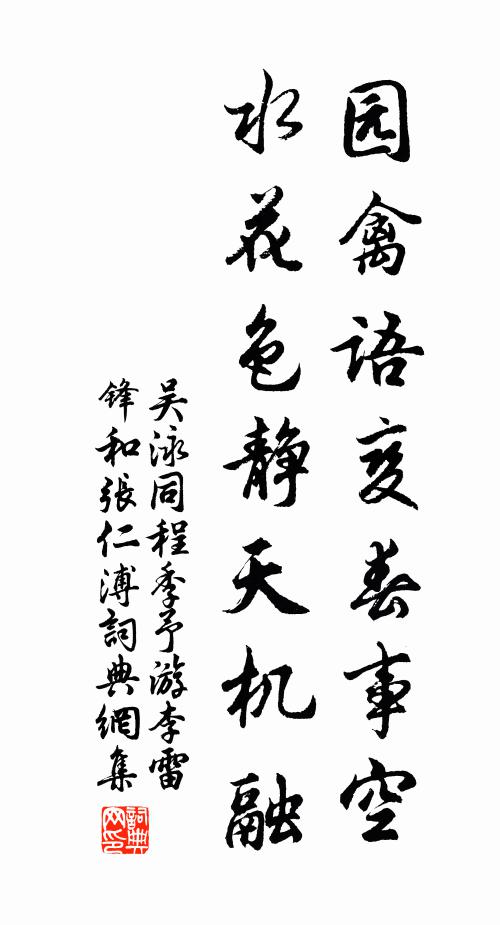 园禽语变春事空
水花色静天机融
吴泳同程季予游李雷
锋和張仁溥詞典網集
詞典
网印